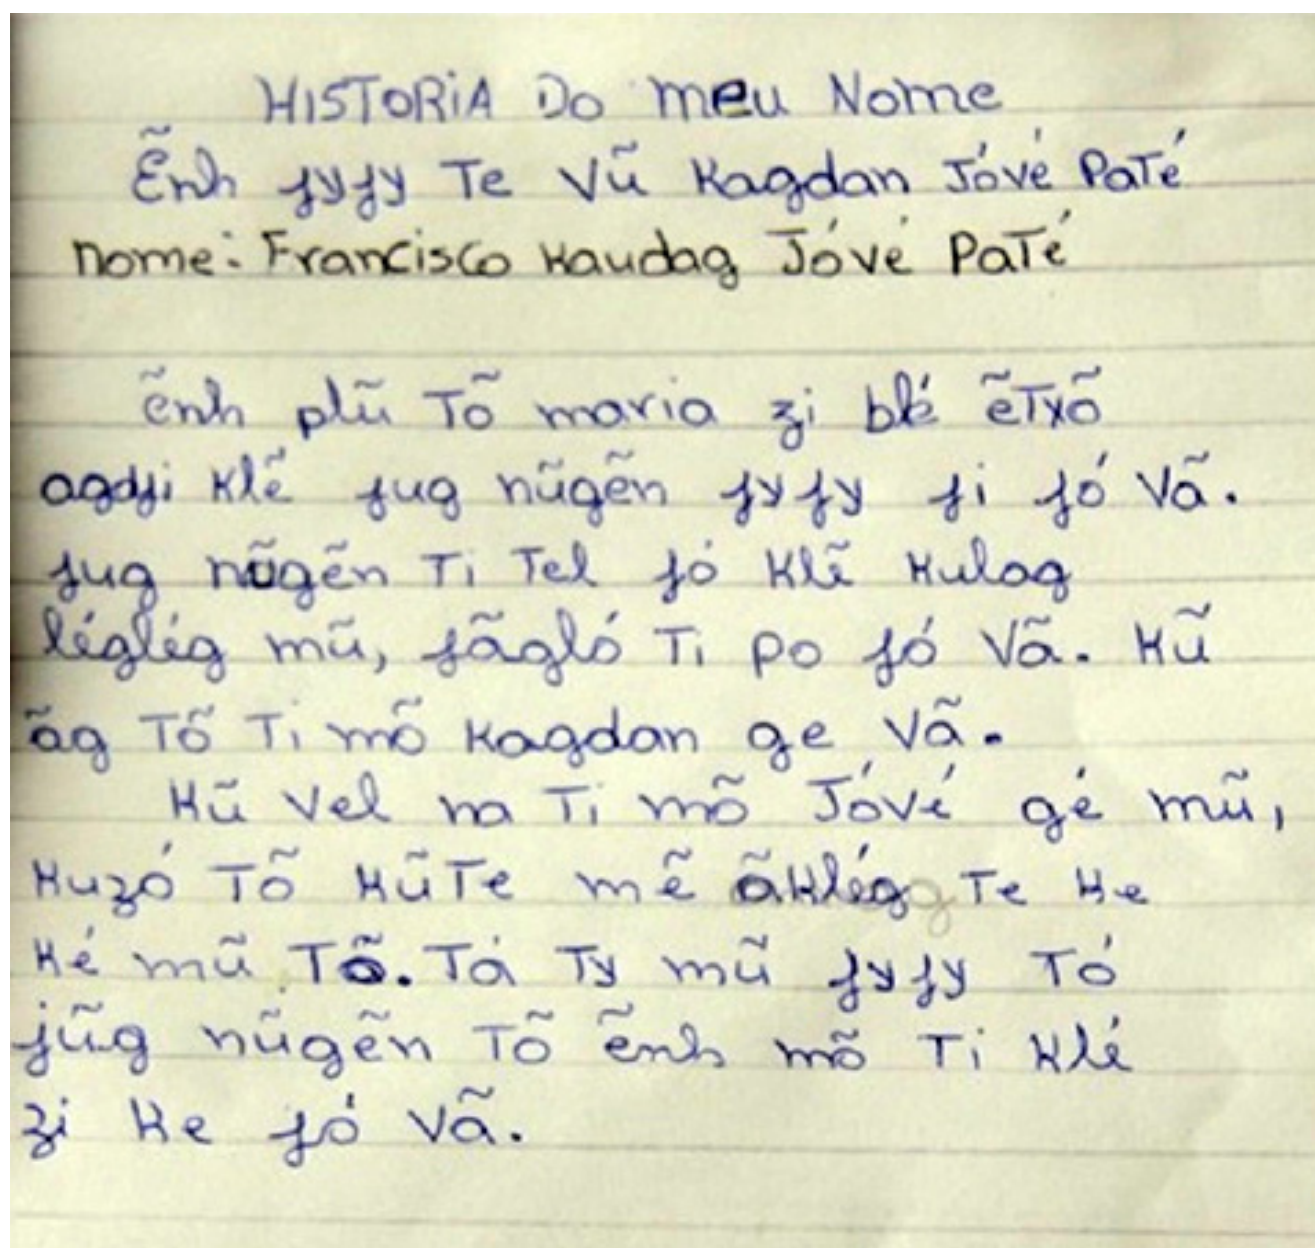 HISTORIA DO meu Nome
Ẽnh jyjy Te Vũ Kagdan Jóvé PaTé
Nome: Francisco Kaudag Jóvé PaTé
ẽnh plũ Tõ maria zi blé ẽTxõ
agdji Klẽ jug nũgẽn jyjy ji jó Vã.
jug nũgẽn Ti Tel jó Klẽ Kulag
léglég mũ, jãgló Ti po jó Vã. Kũ
ãg Tõ Ti mõ Kagdan ge Vã.
Kũ Vel na Ti mõ Jóvé gé mũ,
Kuzó Tõ KũTe mẽ ãklég Te Ke
Ké mũ Tõ. Tá Ty mũ jyjy Tó
jũg nũgẽn Tõ ẽnh mõ Ti Klé
zi Ke jó Vã.